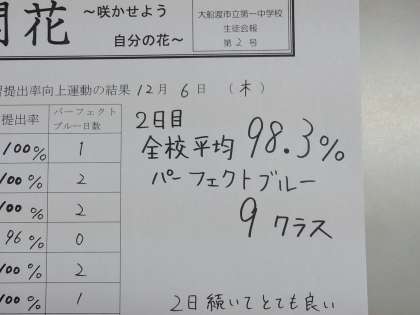 開花
～咲かせよう
自分の花～
大船渡市立第一中学校
生徒会報
第2号
提出率向上運動の結果 12月 6日 (木)
提出率
パーフェクト
ブルー日数
100% 1
100% 2
100% 2
96% 0
100% 2
100% 1
2日目
全校平均 98.3%
パーフェクトブルー
9クラス
2日続いてとても良い